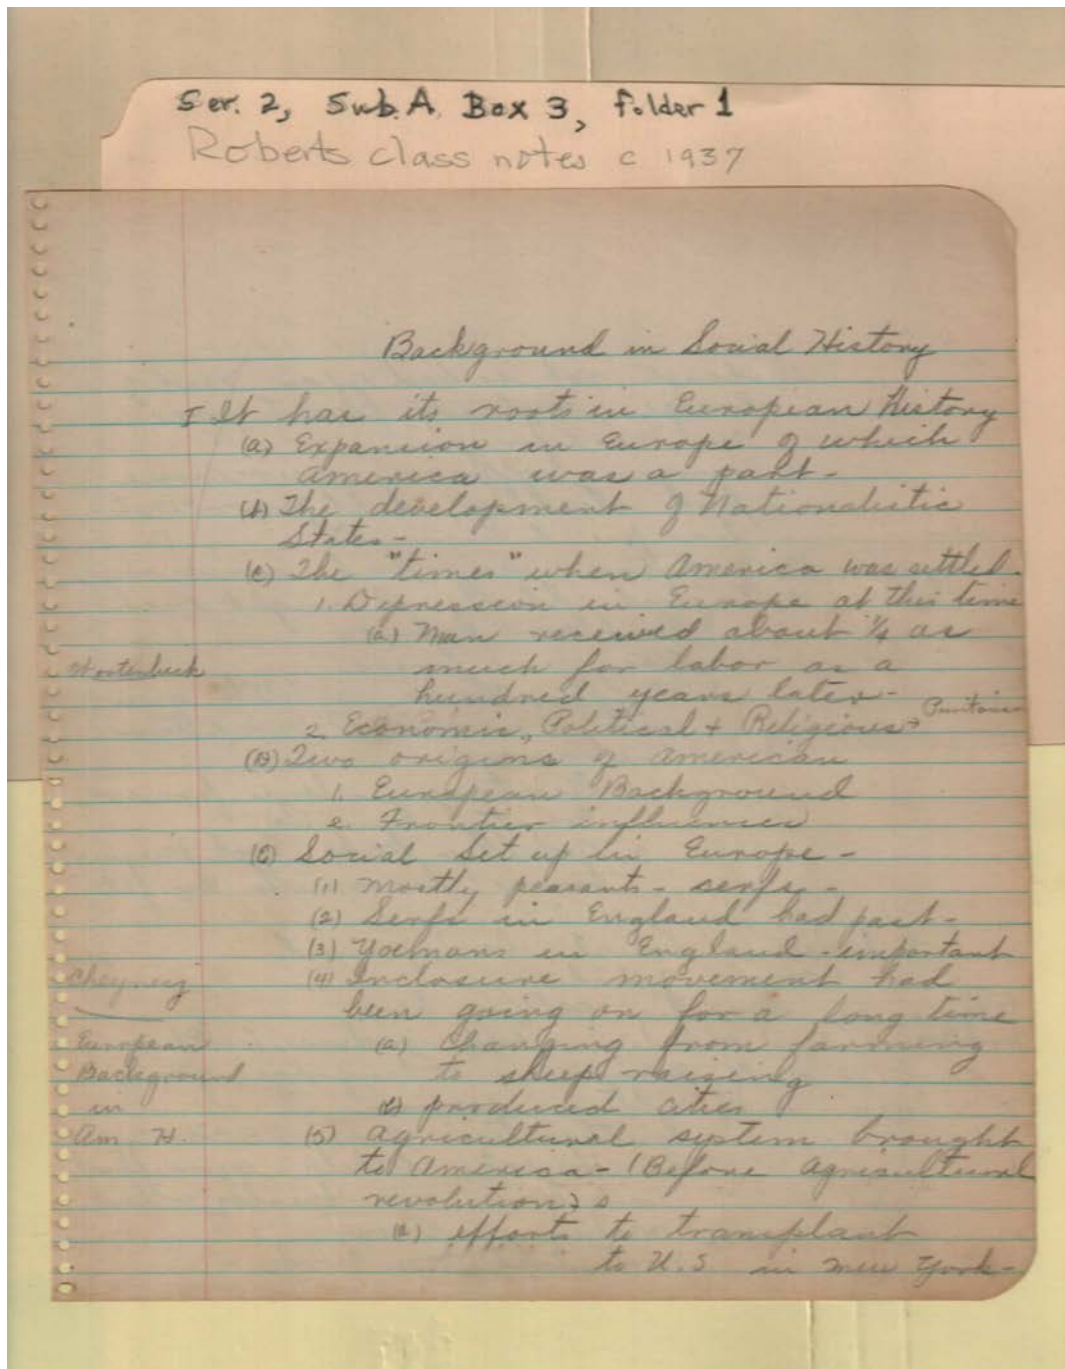 Ser. 2, Sub.A. Box 3, Folder 1
Roberts class notes c 1937
Background in Social History
I It has its roots in European History
(a) Expansion in Europe of which
America was a part-
(b) The development of Nationalistic
States-
(c) The "times" when America was settled.
1. Depression in Europe at this time
(a) Man received about 1/4 as
much for labor as a
hundred years later-
2. Economic, Political + Religious Puritans
Two origins of American
1. European Background
2. Frontier influences
(C) Social Set up in Europe-
(1) mostly peasants - serfs-
(2) Serfs in England had past-
(3) Yoemans in England - important
Cheyney
(4) Inclosure movement had
been going on for a long time
European
Background
in
Am H.
(a) Changing from farming
to sheep raising
(b) produced cities
(5) Agricultural system brought
to America - (Before Agricultural
revolution)
(a) efforts to transplant
to U.S in new York-